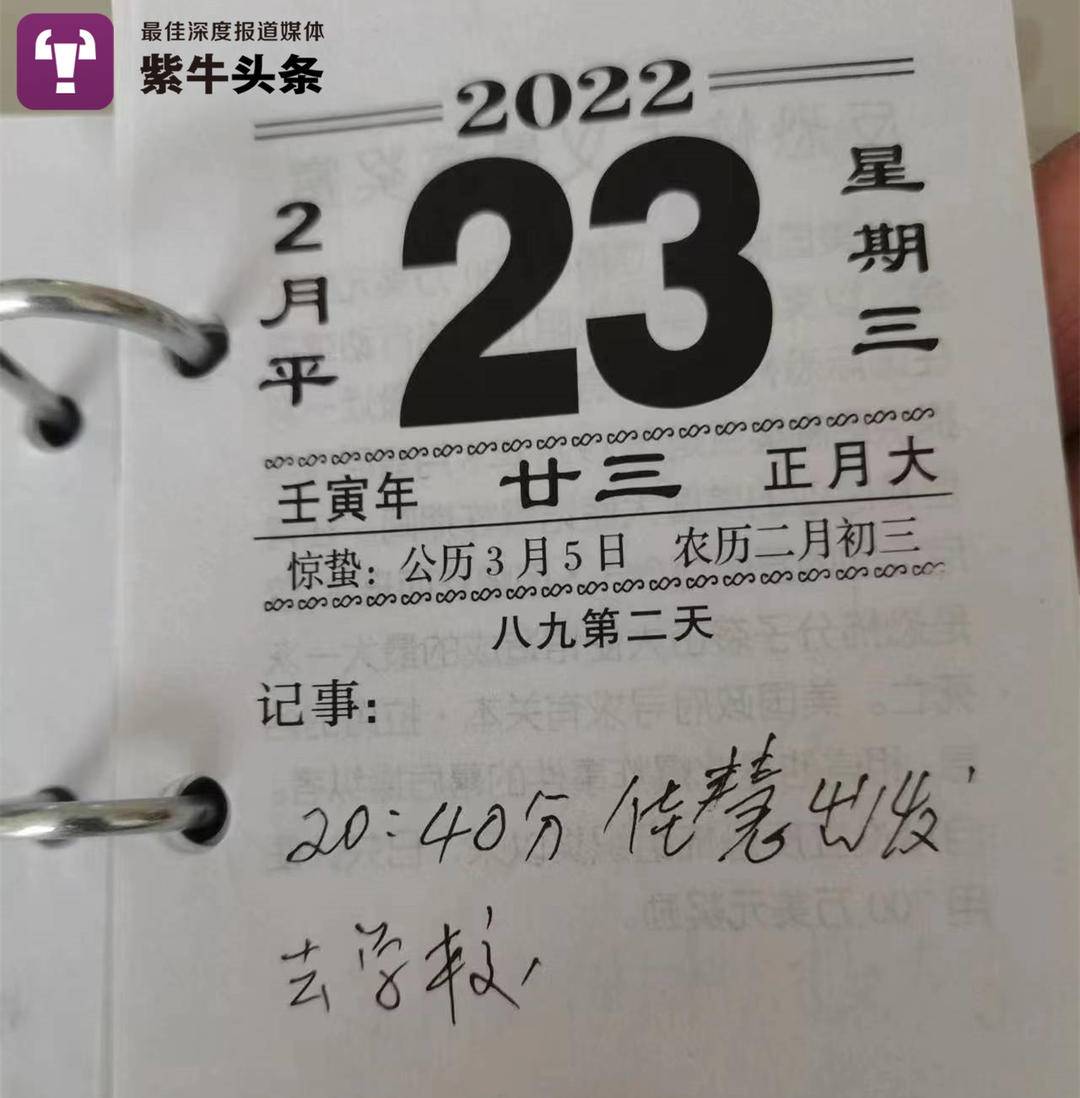 最佳深度报道媒体
紫牛头条
2022
2月平
23
星期三
壬寅年 廿三 正月大
惊蛰：公历3月5日 农历二月初三
八九第二天
记事：
20:40分佳慧出发
去学校